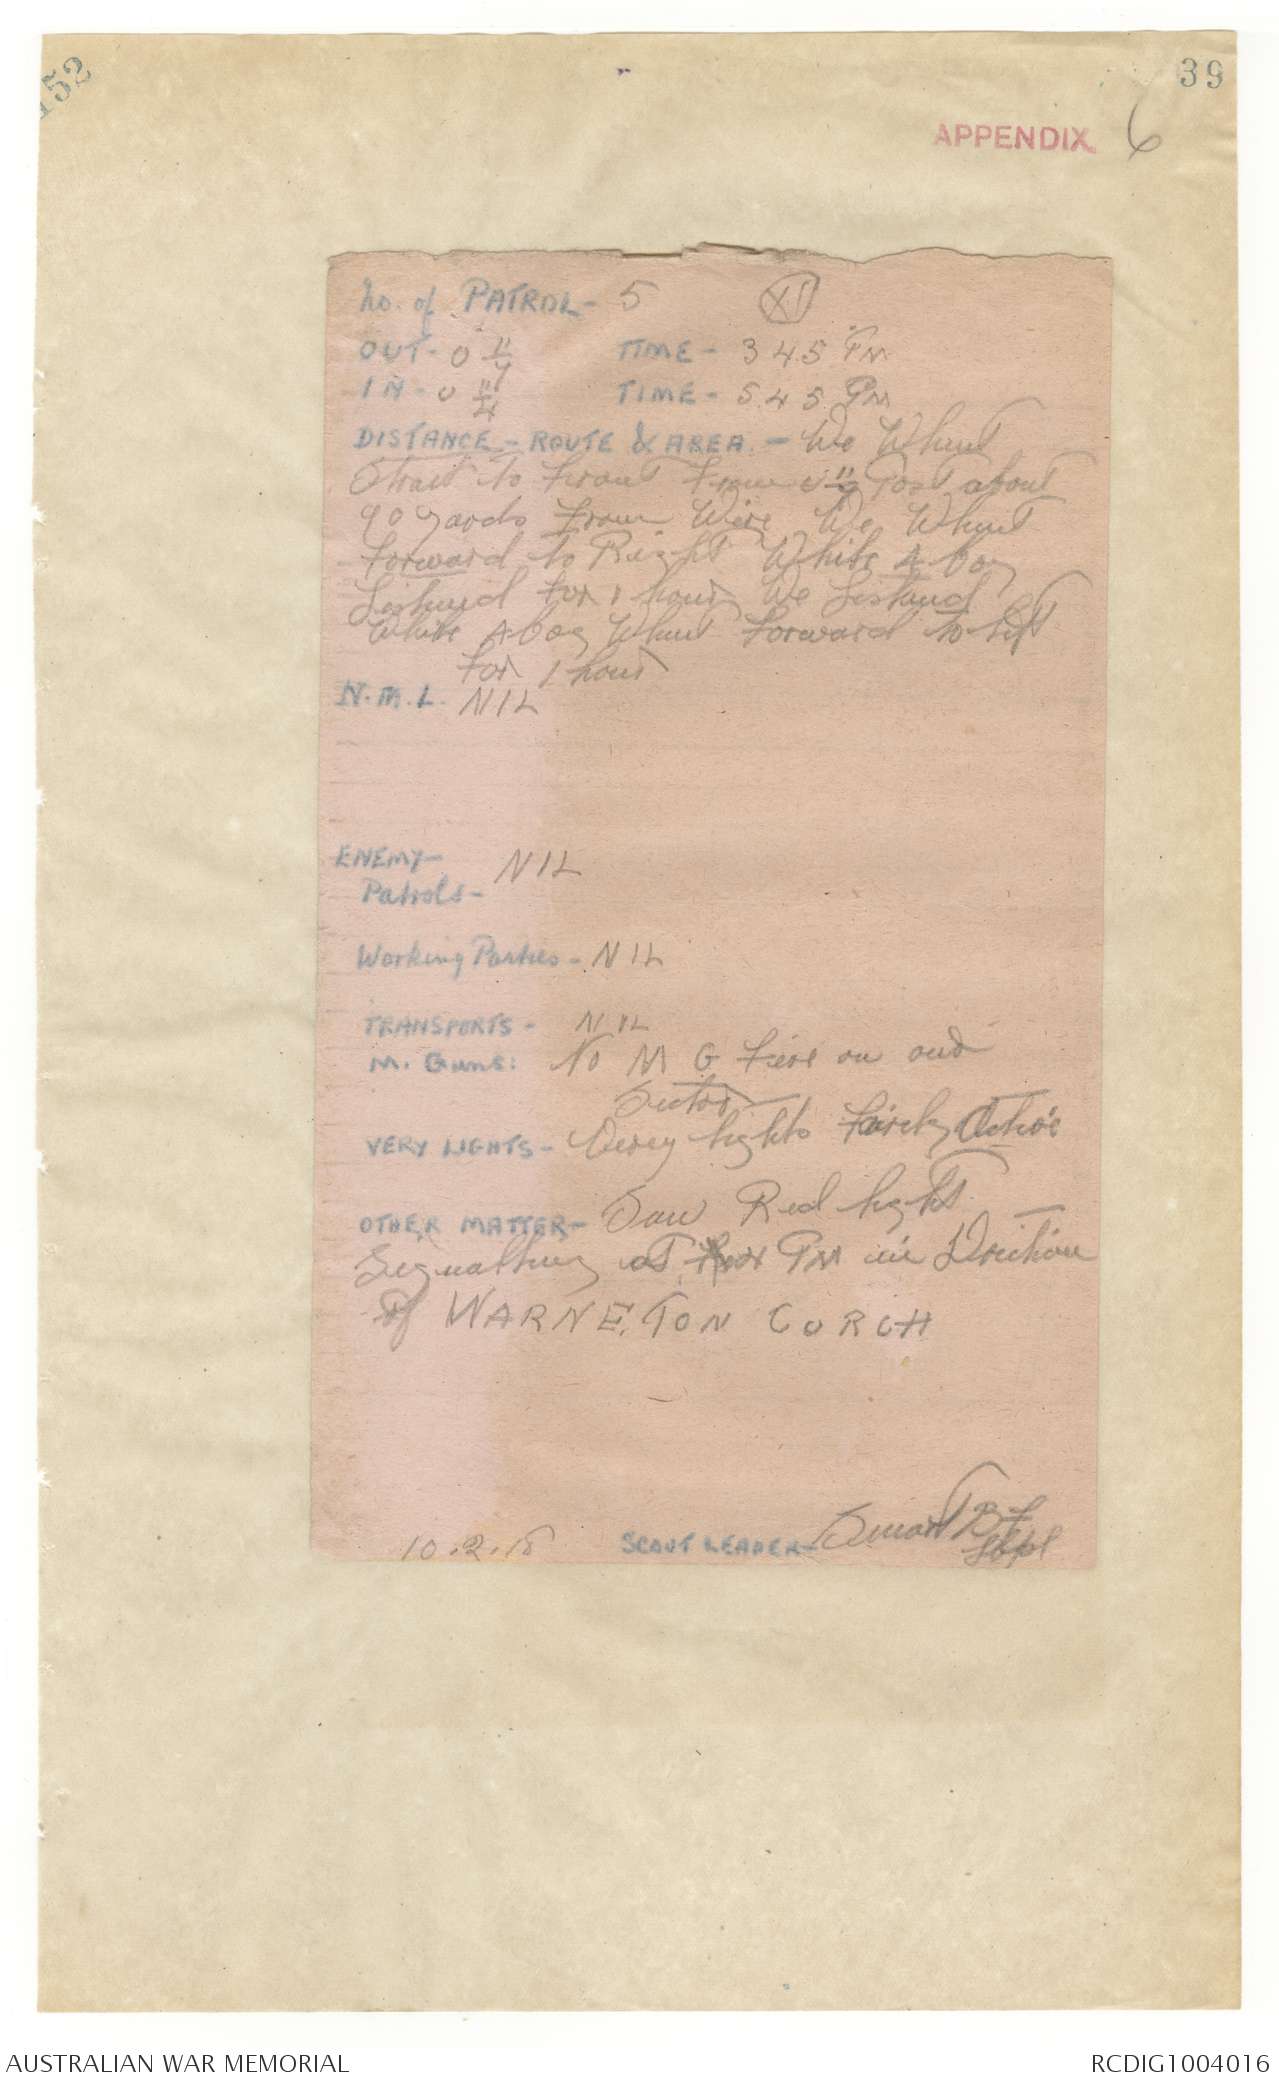 152
39
APPENDIX 6
No. of PATROL - 5 XI
OUT - O 11/4 TIME - 3 45 PM
IN - O 11/4 TIME - 5.45 PM
DISTANCE - ROUTE & AREA. - We Whent
Strait to Front From O 11/4 Post about
90 yards From Wire We Whent
Forward to Right While A boy
Listined For 1 hour We Listined
While A boy Whent Forward to left
For 1 hour
N.M.L. NIL
ENEMY - NIL
Patrols -
Working Parties - NIL
TRANSPORTS - NIL
M. Guns: No M G Fire on our
Sector
VERY LIGHTS - Verey lights Fairly Active
OTHER MATTER - Saw Red light
Signalling at PM in Direction
of WARNETON CURCH
10.2.18 SCOUT LEADER - Smart B F
L/cpl
AUSTRALIAN WAR MEMORIAL
RCDIG1004016